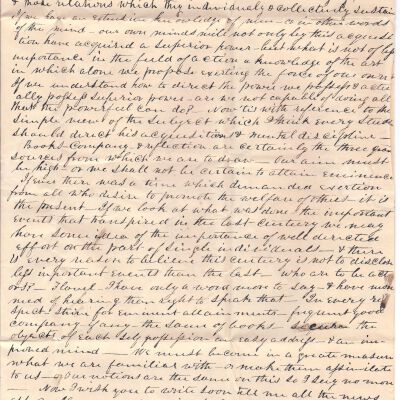 & those relations which they individually & collectively sustain
If we have an extensive knowledge of men - or in other words
of the mind our own minds will not only by this acquisi-
tion have acquired a superior power - but what is not of less
importance in the field of action a knowledge of the art
in which alone we propose exerting the force of our own
If we understand how to direct the power we possess & actu
ally possess superior power - are we not capable of doing all
that the powerful can do? - now tis with reference to this
simple view of the subject which I think every Student
should direct his acquisitions & mental discipline -
Books - Company & reflection are certainly the three grand
sources from which we are to draw - Our aim must
be high - or we shall not be certain to attain eminence
If ever there was a time which demanded exertion
from all who desire to promote the welfare of others it is
the present - If we look at what was done the important
events that transpired in the last century we may
have some idea of the importance of well directed
effort on the part of single individuals - & there
is every reason to believe this century is not to disclose
less important events than the last - who are to be act
ors? - I have only a word more to say - & have more
need of hearing than right to speak that - In every re
spect - strive for eminent attainments - frequent good
company if any - the same of books - secure the
objects of each Self possession an easy address - & an im-
proved mind - We must become in a great measure
what we are familiar with - or make them assimilate
to us - Our notions are the same on this so I say no more
Now I wish you to write soon tell me all the news